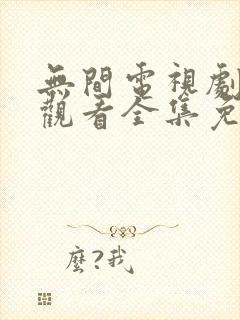 無間電視劇
觀看全集免
麼?我